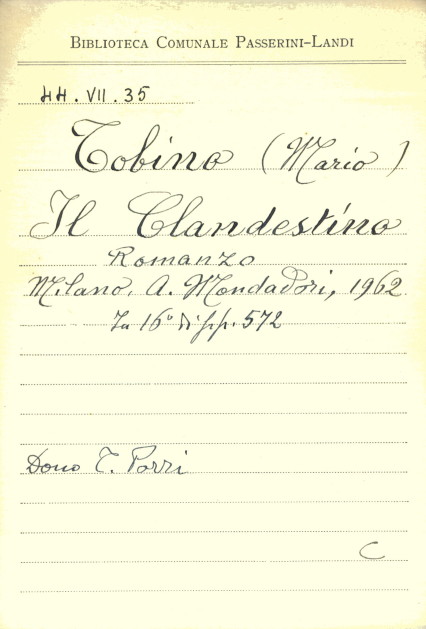 BIBLIOTECA COMUNALE PASSERINI-LANDI
44.VII.35
Tobino (Mario)
Il Clandestino
Romanzo
Milano, A. Mondadori, 1962
In 16° di pp. 572
Dono T. Porri
C